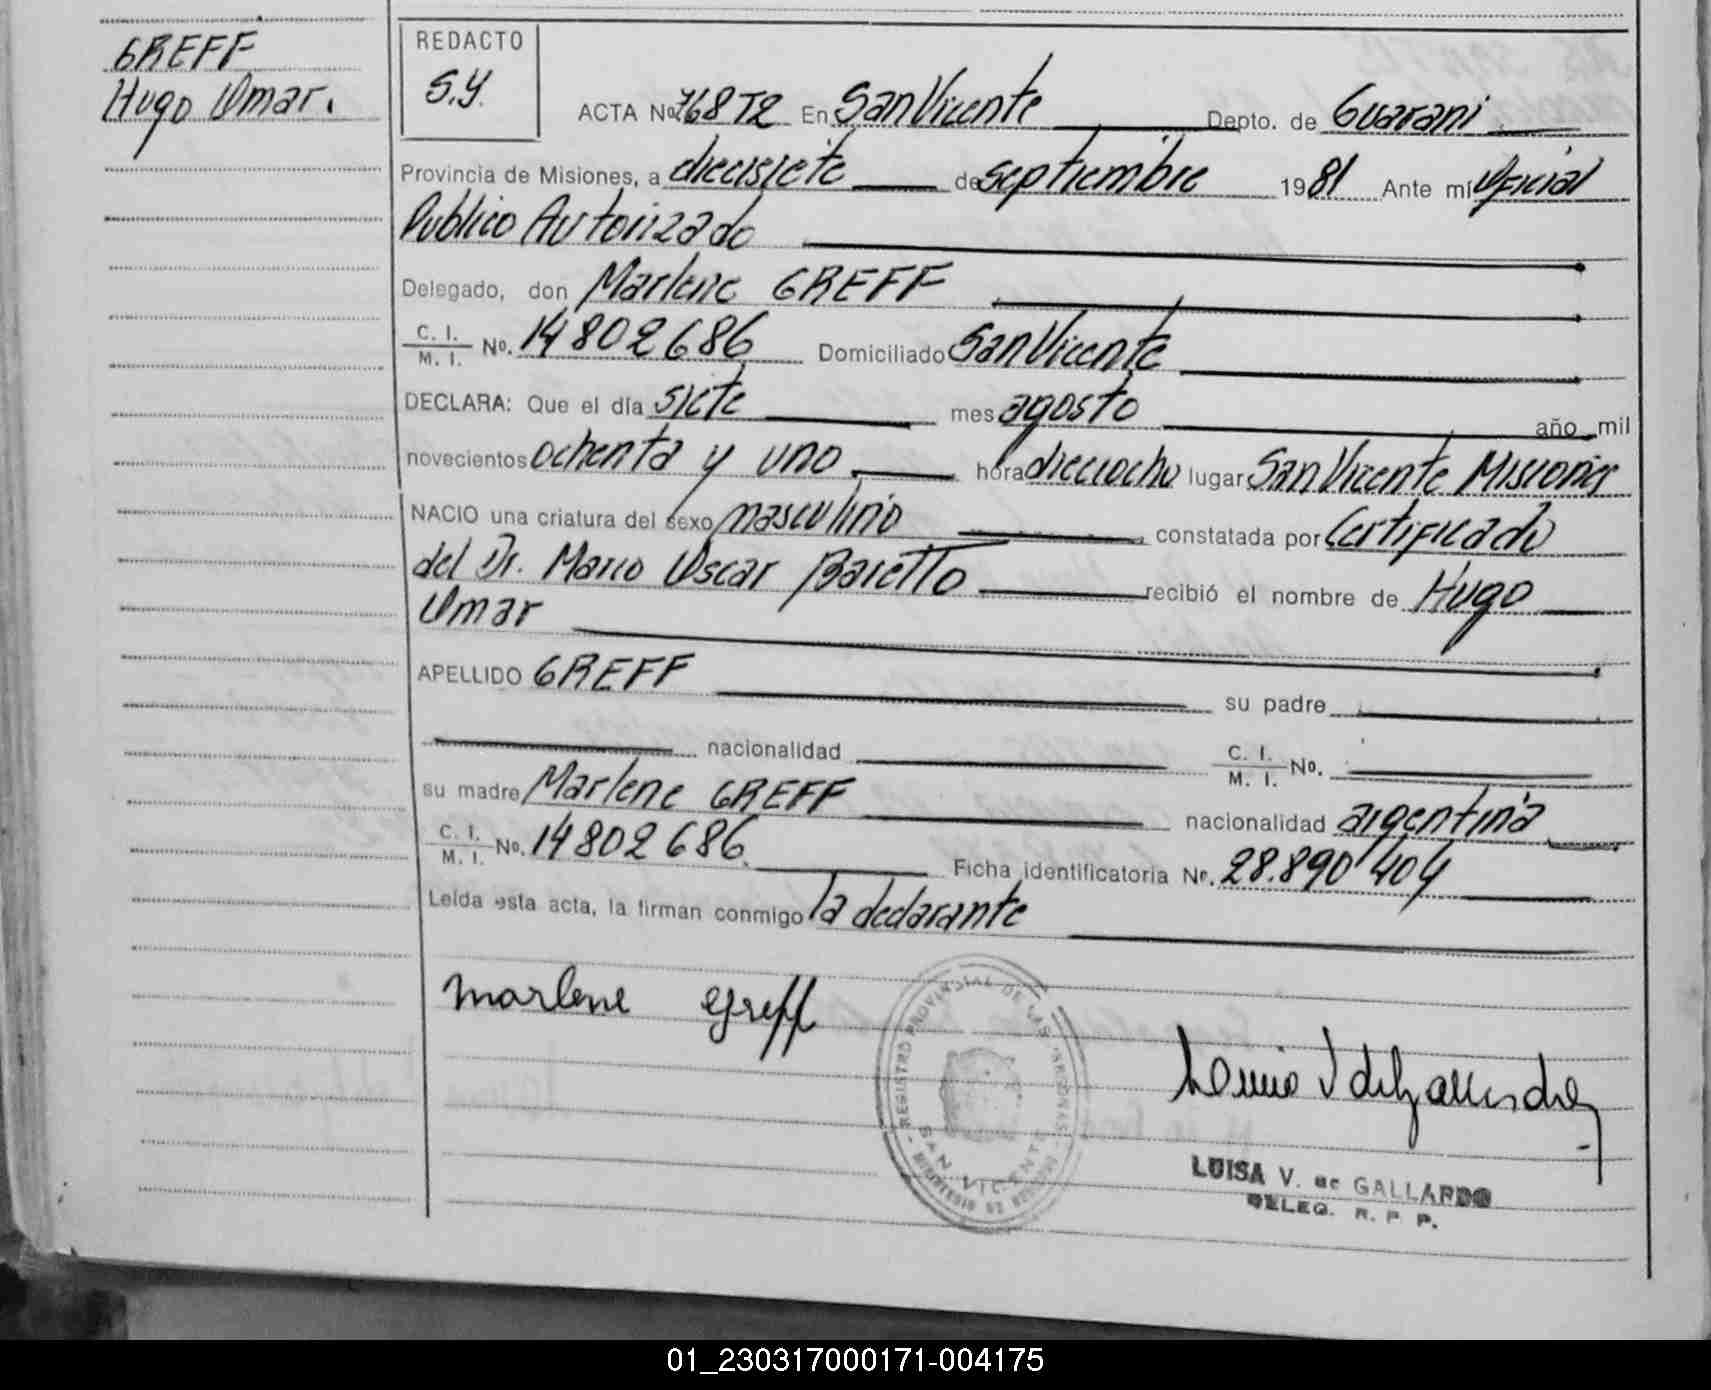 GREFF
Hugo Omar.
REDACTO
S.Y.
ACTA No. 768 T2 En San Vicente Depto. de Guarani
Provincia de Misiones, a diecisiete de septiembre 1981 Ante mí Oficial
Publico Autorizado
Delegado, don Marlene GREFF
C. I. / M. I. No. 14802686 Domiciliado San Vicente
DECLARA: Que el día siete mes agosto año mil
novecientos ochenta y uno hora dieciocho lugar San Vicente Misiones
NACIO una criatura del sexo masculino constatada por Certificado
del Dr. Mario Oscar Baretto recibió el nombre de Hugo
Omar
APELLIDO GREFF su padre
nacionalidad C. I. / M. I. No.
su madre Marlene GREFF nacionalidad argentina
C. I. / M. I. No. 14802686 Ficha identificatoria No. 28.890404
Leída esta acta, la firman conmigo la declarante
marlene Greff
REGISTRO PROVINCIAL DE LAS PERSONAS
SAN VICENTE
LUISA V. de GALLARDO
DELEG. R. P. P.
01_230317000171-004175